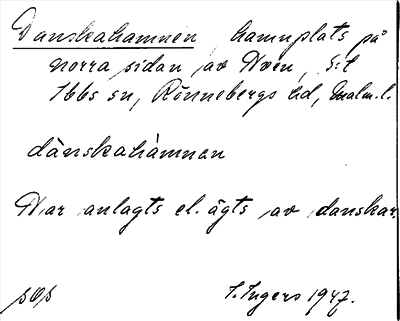 Danskahamnen, hamnplats på
norra sidan av Ven, S:t
Ibbs sn, Rönnebergs hd, Malm. l.
dànskahàmnan
Har anlagts el. ägts av danskar.
I. Ingers 1947.